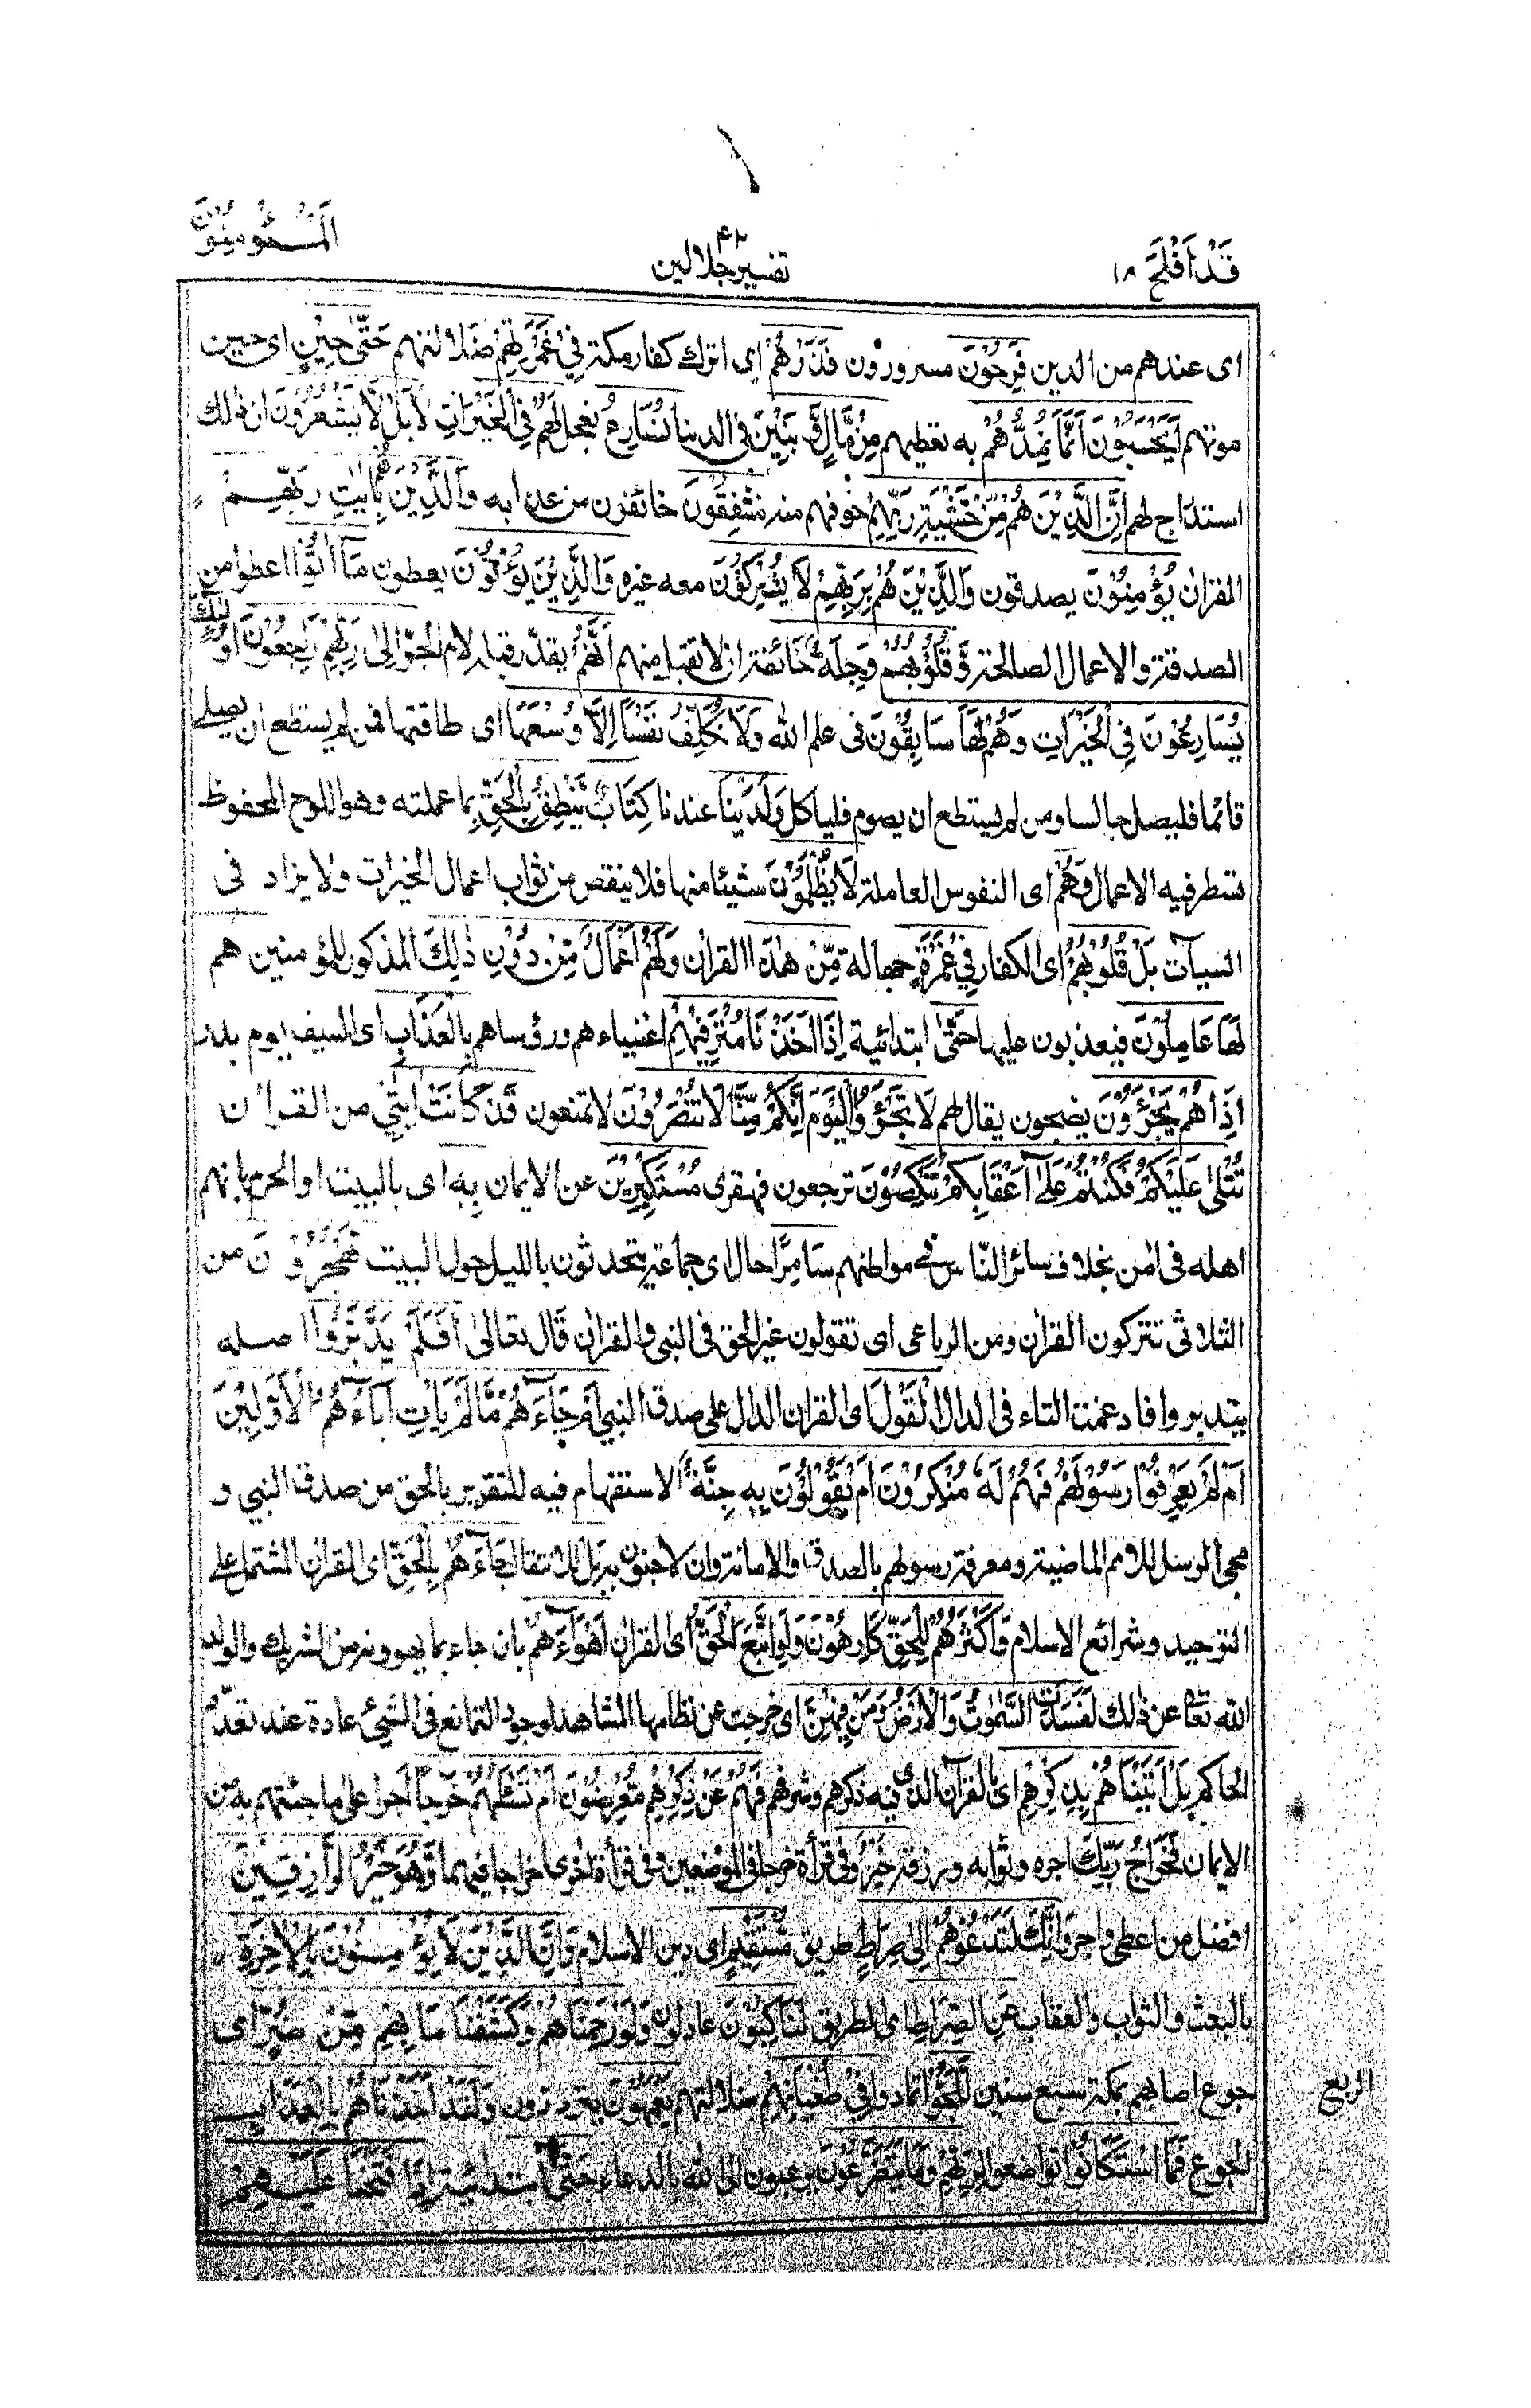 قَدْ اَفْلَحَ ١٨
٤٢
تفسير جلالين
اَلْمُؤْمِنُوْنَ
اى عندهم من الدين فَرِحُوْنَ مسرورون فَذَرْهُمْ اى اترك كفار مكة فِيْ غَمْرَتِهِمْ ضلالتهم حَتّٰى حِيْنٍ اى حين
موتهم اَيَحْسَبُوْنَ اَنَّمَا نُمِدُّهُمْ بِه نعطيهم مِنْ مَّالٍ وَّبَنِيْنَ فى الدنيا نُسَارِعُ نعجل لَهُمْ فِي الْخَيْرَاتِ لا بَلْ لَّا يَشْعُرُوْنَ ان ذلك
استدراج لهم اِنَّ الَّذِيْنَ هُمْ مِّنْ خَشْيَةِ رَبِّهِمْ خوفهم منه مُّشْفِقُوْنَ خائفون من عذابه وَالَّذِيْنَ هُمْ بِاٰيٰتِ رَبِّهِمْ
القران يُؤْمِنُوْنَ يصدقون وَالَّذِيْنَ هُمْ بِرَبِّهِمْ لَا يُشْرِكُوْنَ معه غيره وَالَّذِيْنَ يُؤْتُوْنَ يعطون مَا اٰتَوْا اعطوا من
الصدقة والاعمال الصالحة وَّقُلُوْبُهُمْ وَجِلَةٌ خائفة ان لا تقبل منهم اَنَّهُمْ يقدر قبله لام الجر اِلٰى رَبِّهِمْ رَاجِعُوْنَ اُولٰئِكَ
يُسَارِعُوْنَ فِي الْخَيْرَاتِ وَهُمْ لَهَا سَابِقُوْنَ فى علم الله وَلَا نُكَلِّفُ نَفْسًا اِلَّا وُسْعَهَا اى طاقتها فمن لم يستطع ان يصلى
قائما فليصل جالسا ومن لم يستطع ان يصوم فلياكل وَلَدَيْنَا عندنا كِتَابٌ يَّنْطِقُ بِالْحَقِّ بما عملته وهو اللوح المحفوظ
تسطر فيه الاعمال وَهُمْ اى النفوس العاملة لَا يُظْلَمُوْنَ شيئا منها فلا ينقص من ثواب اعمال الخيرات ولا يزاد فى
السيآت بَلْ قُلُوْبُهُمْ اى الكفار فِيْ غَمْرَةٍ جهالة مِّنْ هٰذَا القران وَلَهُمْ اَعْمَالٌ مِّنْ دُوْنِ ذٰلِكَ المذكور للمؤمنين هم
لَهَا عَامِلُوْنَ فيعذبون عليها حَتّٰى ابتدائية اِذَا اَخَذْنَا مُتْرَفِيْهِمْ اغنياءهم ورؤساهم بِالْعَذَابِ اى السيف يوم بدر
اِذَا هُمْ يَجْئَرُوْنَ يضجون يقال لهم لَا تَجْئَرُوا الْيَوْمَ اِنَّكُمْ مِّنَّا لَا تُنْصَرُوْنَ لا تمنعون قَدْ كَانَتْ اٰيٰتِيْ من القرآن
تُتْلٰى عَلَيْكُمْ فَكُنْتُمْ عَلٰى اَعْقَابِكُمْ تَنْكِصُوْنَ ترجعون قهقرى مُسْتَكْبِرِيْنَ عن الايمان بِه اى بالبيت او الحرم بانهم
اهله فى امن بخلاف سائر الناس فى مواطنهم سَامِرًا حال اى جماعة يتحدثون بالليل حول البيت تَهْجُرُوْنَ من
الثلاثى تتركون القران ومن الرباعى اى تقولون غير الحق فى النبى والقران قَالَ تعالى اَفَلَمْ يَدَّبَّرُوا اصله
يتدبروا فادغمت التاء فى الدال الْقَوْلَ اى القران الدال على صدق النبى اَمْ جَاءَهُمْ مَّا لَمْ يَاْتِ اٰبَاءَهُمُ الْاَوَّلِيْنَ
اَمْ لَمْ يَعْرِفُوْا رَسُوْلَهُمْ فَهُمْ لَهُ مُنْكِرُوْنَ اَمْ يَقُوْلُوْنَ بِهٖ جِنَّةٌ الاستفهام فيه للتقرير بالحق من صدق النبى و
مجى الرسل للامم الماضية ومعرفة رسولهم بالصدق والامانة وان لا جنون به بَلْ للانتقال جَاءَهُمْ بِالْحَقِّ اى القران المشتمل على
التوحيد وشرائع الاسلام وَاَكْثَرُهُمْ لِلْحَقِّ كَارِهُوْنَ وَلَوِ اتَّبَعَ الْحَقُّ اى القران اَهْوَاءَهُمْ بان جاء بما يهوونه من الشريك والولد
لله تعا عن ذلك لَفَسَدَتِ السَّمٰوٰتُ وَالْاَرْضُ وَمَنْ فِيْهِنَّ اى خرجت عن نظامها المشاهد لوجود التمانع فى الشئ عادة عند تعدد
الحاكم بَلْ اَتَيْنَاهُمْ بِذِكْرِهِمْ اى القرآن الذى فيه ذكرهم وشرفهم فَهُمْ عَنْ ذِكْرِهِمْ مُّعْرِضُوْنَ اَمْ تَسْئَلُهُمْ خَرْجًا اجرا على ما جئتهم به من
الايمان فَخَرَاجُ رَبِّكَ اجره وثوابه ورزقه خَيْرٌ وفى قرأة خرجا فى الموضعين وفى قرأة اخرى خراجا فيهما وَّهُوَ خَيْرُ الرَّازِقِيْنَ
افضل من اعطى واجر وَاِنَّكَ لَتَدْعُوْهُمْ اِلٰى صِرَاطٍ طريق مُّسْتَقِيْمٍ اى دين الاسلام وَاِنَّ الَّذِيْنَ لَا يُؤْمِنُوْنَ بِالْاٰخِرَةِ
بالبعث والثواب والعقاب عَنِ الصِّرَاطِ اى الطريق لَنَاكِبُوْنَ عادلون وَلَوْ رَحِمْنَاهُمْ وَكَشَفْنَا مَا بِهِمْ مِّنْ ضُرٍّ اى
جوع اصابهم بمكة سبع سنين لَّلَجُّوْا تمادوا فِيْ طُغْيَانِهِمْ ضلالتهم يَعْمَهُوْنَ يترددون وَلَقَدْ اَخَذْنَاهُمْ بِالْعَذَابِ
الربع
الجوع فَمَا اسْتَكَانُوْا تواضعوا لِرَبِّهِمْ وَمَا يَتَضَرَّعُوْنَ يرغبون الى الله بالدعاء حَتّٰى ابتدائية اِذَا فَتَحْنَا عَلَيْهِمْ